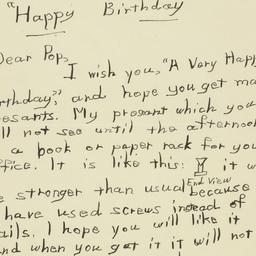 "Happy Birthday
Dear Pop,
I wish you, "A Very Happ
rthday," and hope you get ma
esants. My prosant which you
ll not see until the afternoo
a book or paper rack for yo
fice. It is like this: it w
End View
e stronger than usual because
have used screws instead of
ails. I hope you will like it
nd when you get it it will not